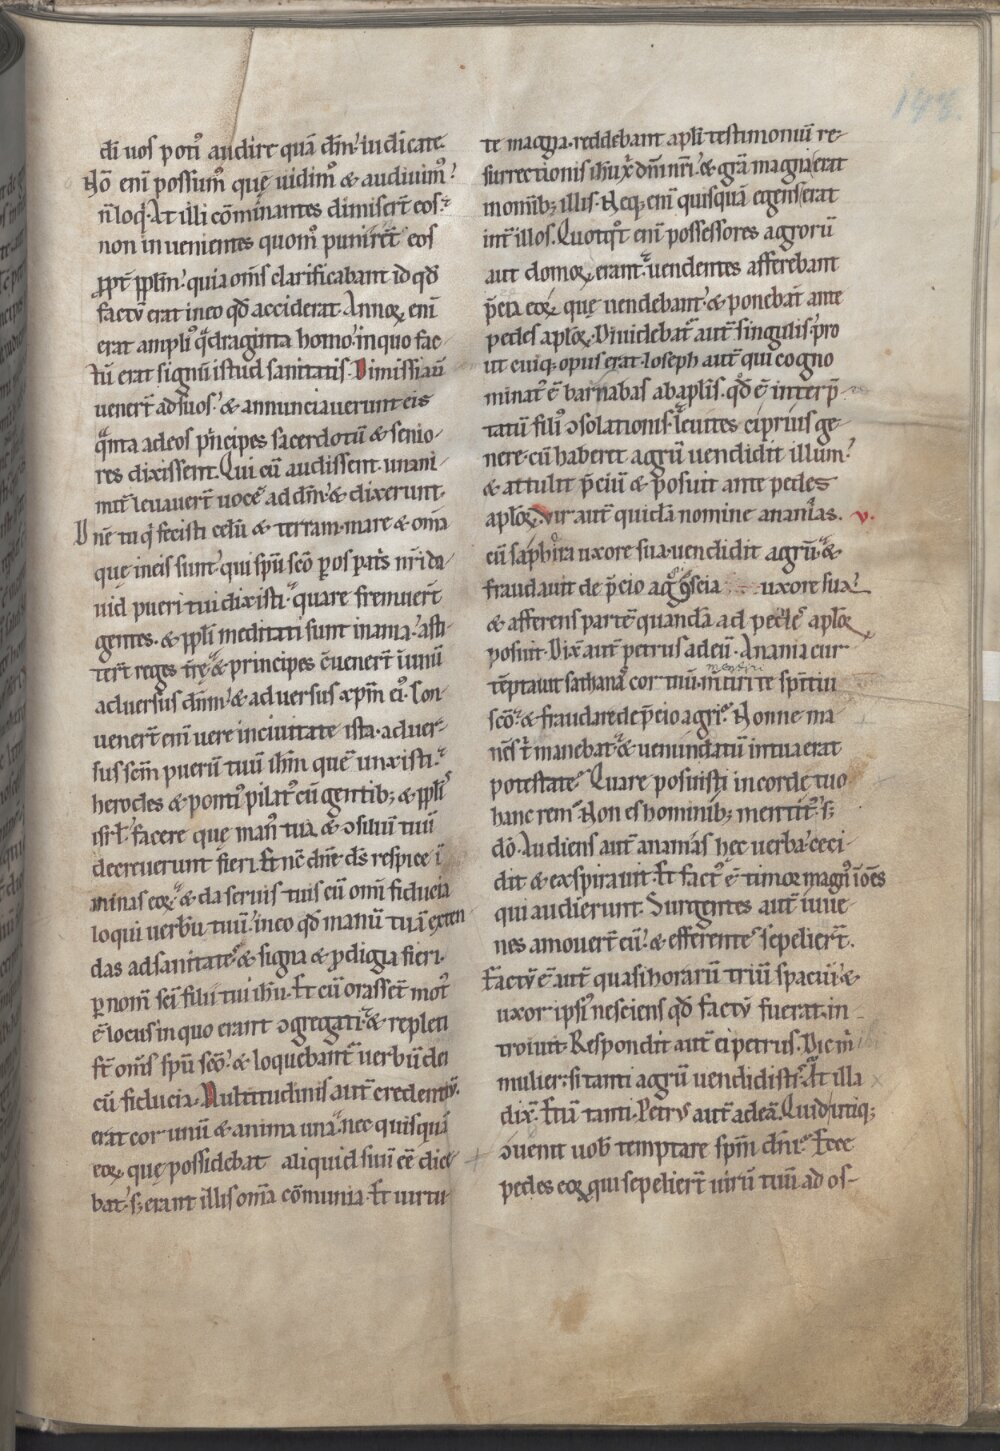 144.
di uos poti᷒ audire quā dm̄ iudicate.
Nō eni possum᷒ quę uidim᷒ & audiuim᷒
n̄ loq̇. At illi cōminantes dimiser̄t eos.
non inuenientes quom̊ punirēt eos
ꝓpt̄ ppl̄m. quia oms̄ clarificabant id qd̄
factū erat in eo qd̄ acciderat. Annoꝝ eni
erat ampli᷒ q̇draginta homo in quo fac-
tū erat signū istud sanitatis. Dimissi aū
uener̄t ad suos. & annunciauerunt eis
q̇nta ad eos pⁱncipes sacerdotū & senio-
res dixissent. Qui cū audissent unani-
mit̄ leuauer̄t uocē ad dm̄ & dixerunt.
Dn̄e tu qⁱ fecisti celū & terram. mare & om̄a
quę in eis sunt. qui spū scō ꝑ os patⁱs nr̄i da-
uid pueri tui dixisti. quare fremuer̄t
gentes. & ppl̄i meditati sunt inania. asti-
ter̄t reges tr̄ę & principes c̄uener̄t ī unū
aduersus dn̄m & aduersus xp̄m ei᷒. Con-
uener̄t eni uere in ciuitate ista. aduer-
sus sc̄m puerū tuū ih̄m quē unxisti.
herodes & ponti᷒ pilat᷒ cū gentib; & ppl̄i
isrl̄. facere quę man᷒ tua & ɔsiliū tuū
decreuerunt fieri. Et nc̄ dn̄e ds̄ respice ī
minas eoꝝ & da seruis tuis cū omi fiducia
loqui uerbū tuū. in eo qd̄ manū tuā exten
das ad sanitates & signa & ꝓdigia fieri.
ꝑ nom̄ sc̄i filii tui ih̄u. Et cū orassēt mot᷒
ē locus in quo erant ɔgregati. & repleti
st̄ oms̄ spū scō. & loquebant᷒ uerbū dei
cū fiducia. Multitudinis aut̄ credentiū.
erat cor unū & anima una. nec quisquā
eoꝝ quę possidebat aliquid suū eē dice-
bat. s; erant illis om̄a cōmunia. Et uirtu-
te magna reddebant apl̄i testimoniū re-
surrectionis ih̄u xp̄ dn̄i nr̄i. & gr̄a magna erat
in omib; illis. Neq; eni quisquā egens erat
int̄ illos. Quotqͦt eni possessores agrorū
aut domoꝝ erant. uendentes afferebant
p̄cia eoꝝ quę uendebant. & ponebant ante
pedes aploꝝ. Diuidebat᷒ aut̄ singulis pro
ut cuiq; opus erat. Ioseph aut̄ qui cogno
minat᷒ ē barnabas ab aplis. qd̄ ē interp̄-
tatū fili᷒ ɔsolationis. leuites cyprius ge-
nere. cū haberet agrū uendidit illum.
& attulit p̄ciū & posuit ante pedes
aploꝝ. Vir aut̄ quidā nomine ananias. v.
cū saphira uxore sua. uendidit agrū. &
fraudauit de p̄cio agⁱ ɔscia uxore sua.
& afferens partē quandā ad pedes aploꝝ
posuit. Dix̄ aut̄ petrus ad eū. Anania cur
tēptauit sathanas cor tuū mentiri te spiritui
scō. & fraudare de p̄cio agri. Nonne ma-
nēs tⁱ manebat. & uenundatū in tua erat
potestate. Quare posuisti in corde tuo
hanc rem. Non es hominib; mentit᷒ s;
dō. Audiens aut̄ ananias hęc uerba. ceci-
dit & exspirauit. Et fact᷒ ē timor magn᷒ ī oēs
qui audierunt. Surgentes aut̄ iuue-
nes amouer̄t eū. & efferentes sepelier̄t.
Factū ē aut̄ quasi horarū triū spaciū. &
uxor ipsi᷒ nesciens qd̄ factū fuerat in-
troiuit. Respondit aut̄ ei petrus. Dic mⁱ
mulier. si tanti agrū uendidistis. At illa
dix̄. Etiā tanti. Petrus aut̄ ad eā. Quid utiq;
ɔuenit uob̄ temptare spm̄ dn̄i. Ecce
pedes eoꝝ qui sepelier̄t uirū tuū ad os-